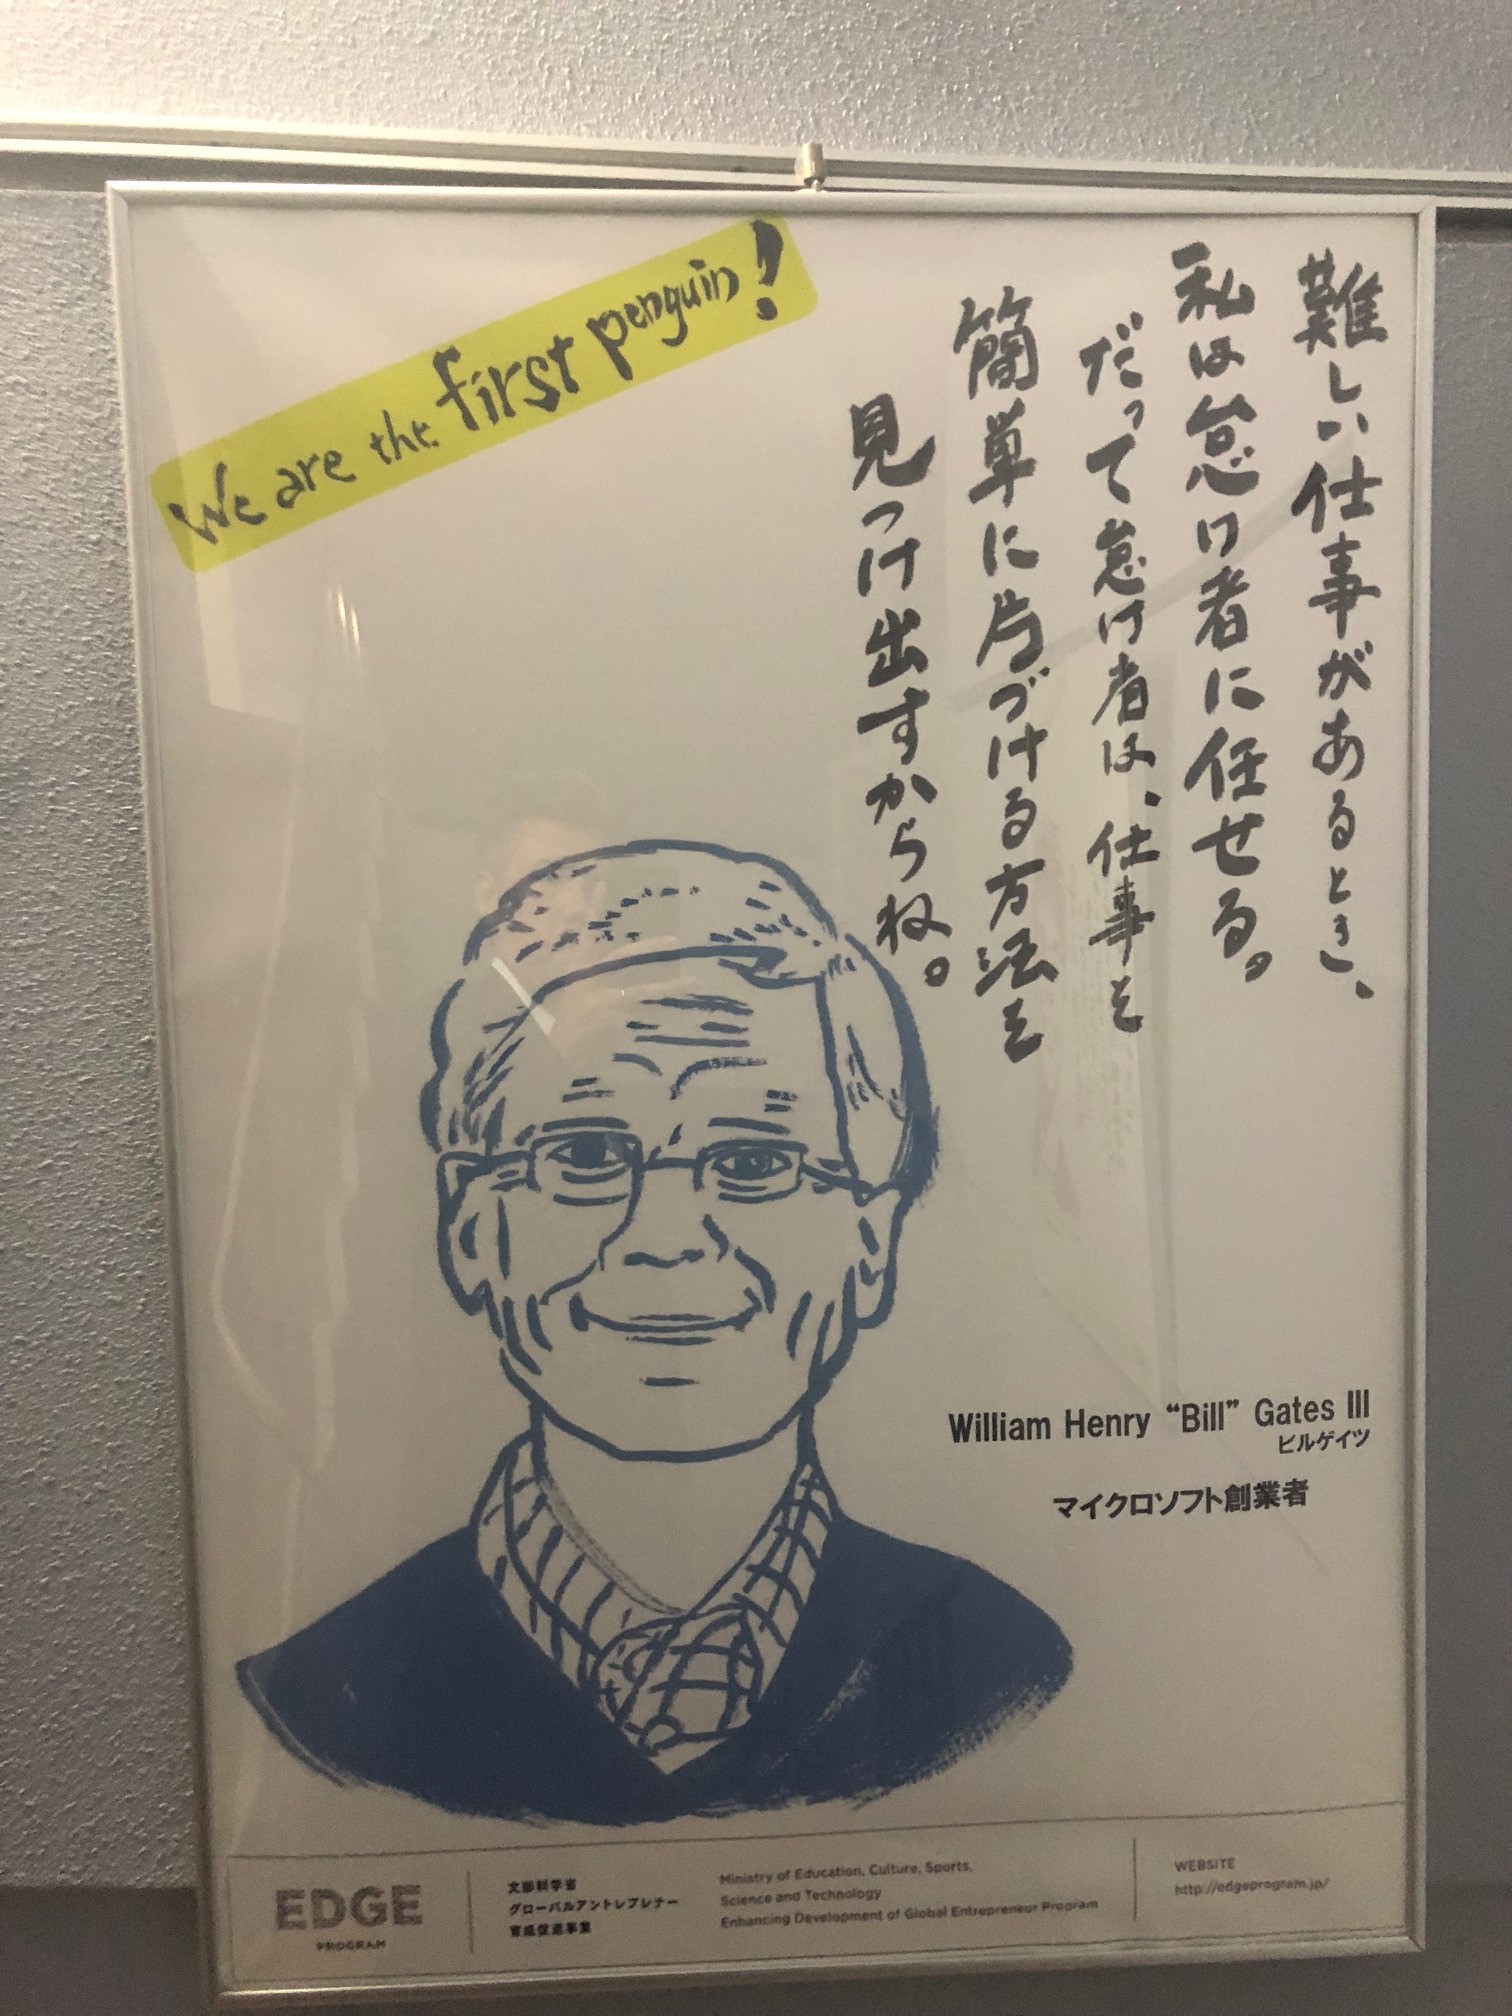 We are the first penguin!
難しい仕事があるとき、
私は怠け者に任せる。
だって怠け者は、仕事を
簡単に片づける方法を
見つけ出すからね。
William Henry “Bill” Gates III
ビルゲイツ
マイクロソフト創業者
EDGE
PROGRAM
文部科学省
グローバルアントレプレナー
育成促進事業
Ministry of Education, Culture, Sports,
Science and Technology
Enhancing Development of Global Entrepreneur Program
WEBSITE
http://edgeprogram.jp/